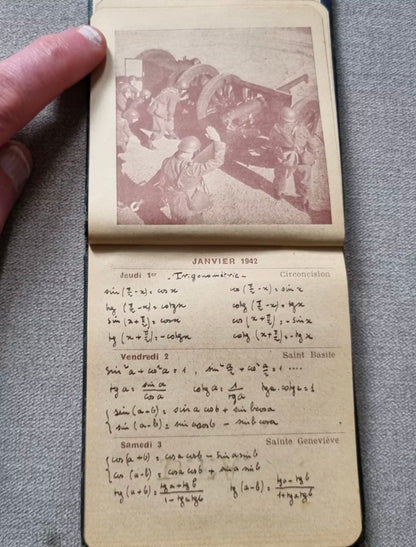 JANVIER 1942
Jeudi 1er - Trigonométrie - Circoncision
sin (π/2 - x) = cos x cos (π/2 - x) = sin x
tg (π/2 - x) = cotg x cotg (π/2 - x) = tg x
sin (x + π/2) = cos x cos (x + π/2) = - sin x
tg (x + π/2) = - cotg x cotg (x + π/2) = - tg x
Vendredi 2 Saint Basile
sin² a + cos² a = 1 , sin² a/2 + cos² a/2 = 1 ....
tg a = sin a / cos a cotg a = 1 / tg a tg a . cotg a = 1
sin (a+b) = sin a cos b + sin b cos a
sin (a-b) = sin a cos b - sin b cos a
Samedi 3 Sainte Geneviève
cos (a+b) = cos a cos b - sin a sin b
cos (a-b) = cos a cos b + sin a sin b
tg (a+b) = tg a + tg b / 1 - tg a tg b tg (a-b) = tg a - tg b / 1 + tg a tg b